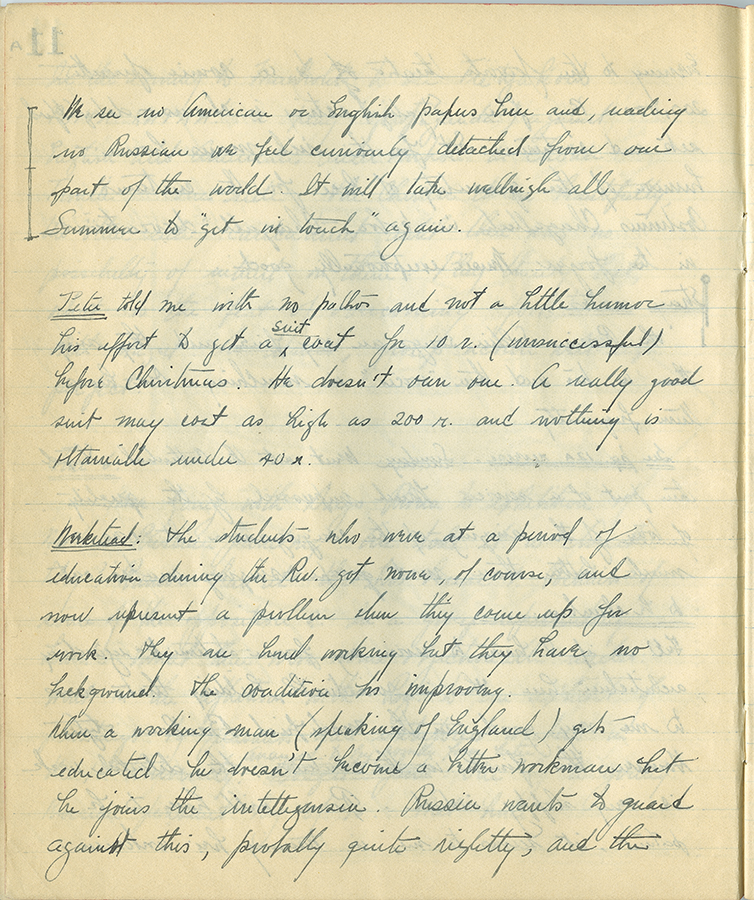 We see no American or English papers here and, reading
no Russian we feel curiously detached from our
part of the world. It will take wellnigh all
Summer to "get in touch" again.
Peter told me with no pathos and not a little humor
his effort to get a suit coat for 10 r. (unsuccessful)
before Christmas. He doesn't own one. A really good
suit may cost as high as 200 r. and nothing is
obtainable under 40 r.
: The students who were at a period of
education during the Rev. got none, of course, and
now represent a problem when they come up for
work. They are hard working but they have no
background. The condition is improving.
When a working man (speaking of England) gets
educated he doesn't become a better workman but
he joins the intelligensia. Russia wants to guard
against this, probably quite rightly, and the